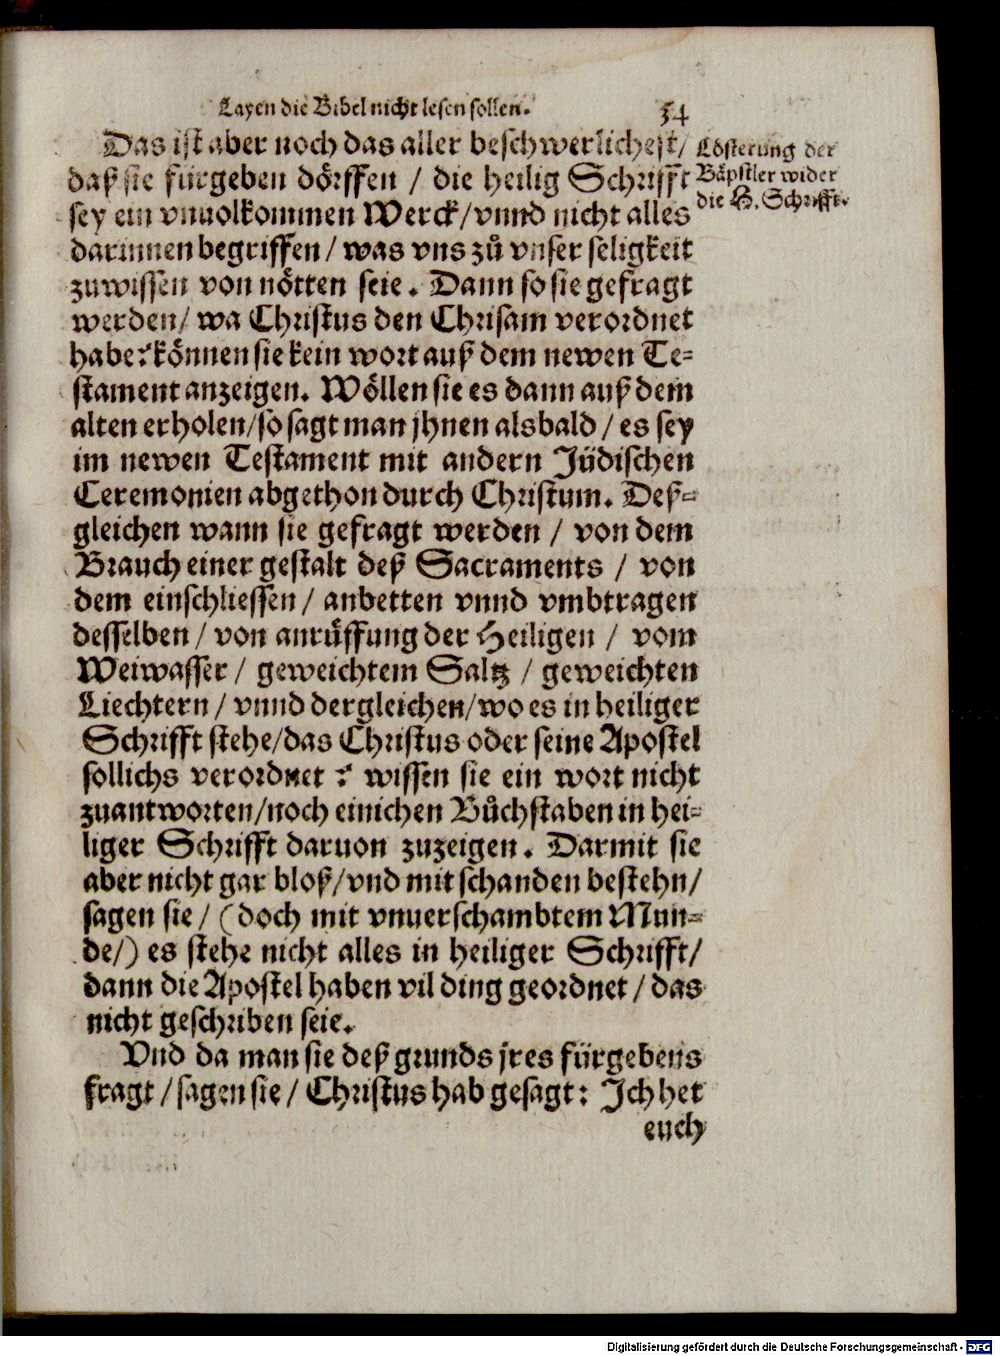 Layen die Bibel nicht lesen sollen. 54
Das ist aber noch das aller beschwerlichest/
daß sie fürgeben dörffen / die heilig Schrifft
sey ein vnuolkommen Werck/vnnd nicht alles
darinnen begriffen/ was vns zů vnser seligkeit
zuwissen von nötten seie. Dann so sie gefragt
werden/ wa Christus den Chrisam verordnet
habe? können sie kein wort auß dem newen Te=
stament anzeigen. Wöllen sie es dann auß dem
alten erholen/so sagt man jhnen alsbald / es sey
im newen Testament mit andern Jüdischen
Ceremonien abgethon durch Christum. Deß=
gleichen wann sie gefragt werden / von dem
Brauch einer gestalt deß Sacraments / von
dem einschliessen/ anbetten vnnd vmbtragen
desselben/ von anrüffung der Heiligen / vom
Weiwasser/ geweichtem Saltz / geweichten
Liechtern/ vnnd dergleichen/wo es in heiliger
Schrifft stehe/das Christus oder seine Apostel
sollichs verordnet? wissen sie ein wort nicht
zuantworten/noch einichen Bůchstaben in hei=
liger Schrifft daruon zuzeigen. Darmit sie
aber nicht gar bloß/vnd mit schanden bestehn/
sagen sie/ (doch mit vnuerschambtem Mun=
de/) es stehe nicht alles in heiliger Schrifft/
dann die Apostel haben vil ding geordnet/das
nicht geschriben seie.
Vnd da man sie deß grunds jres fürgebens
fragt/sagen sie/ Christus hab gesagt: Jch het
euch
Lösterung der
Bäpstler wider
die H. Schrifft.
Digitalisierung gefördert durch die Deutsche Forschungsgemeinschaft - DFG